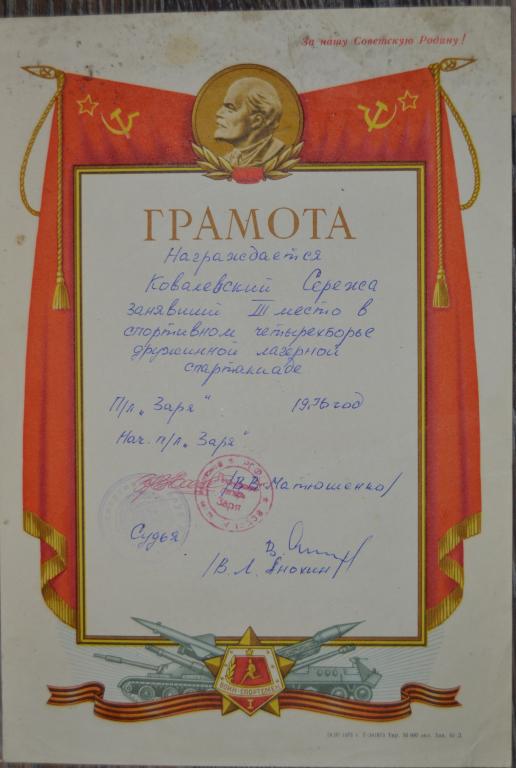 За нашу Советскую Родину!
ГРАМОТА
Награждается
Ковалевский Сережа
занявший III место в
спортивном четырехборье
дружинной лагерной
спартакиаде
П/л „Заря" 1976 год
Нач. п/л „Заря"
/В.В. Матюшенко/
Заря
Судья
/В. Л. Янохин/
ВОИН-СПОРТСМЕН
I